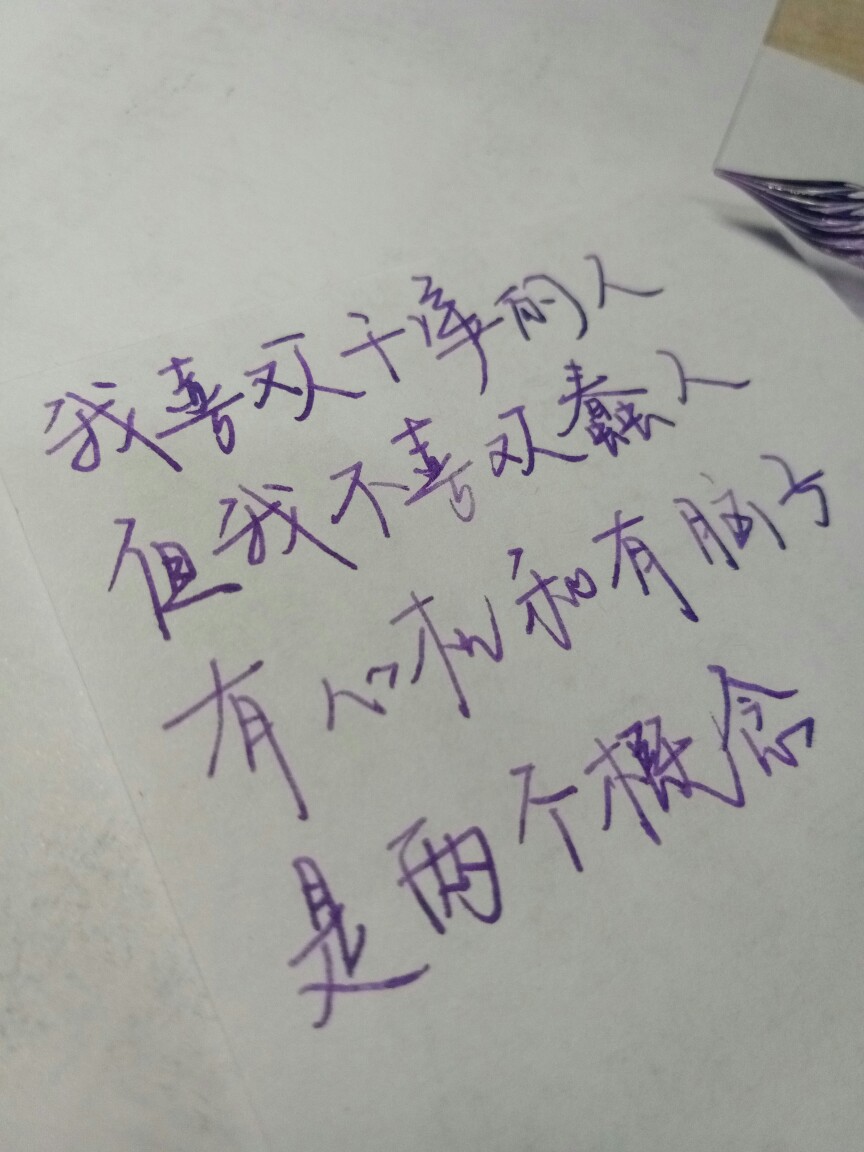 我喜欢干净的人
但我不喜欢蠢人
有心机和有脑子
是两个概念